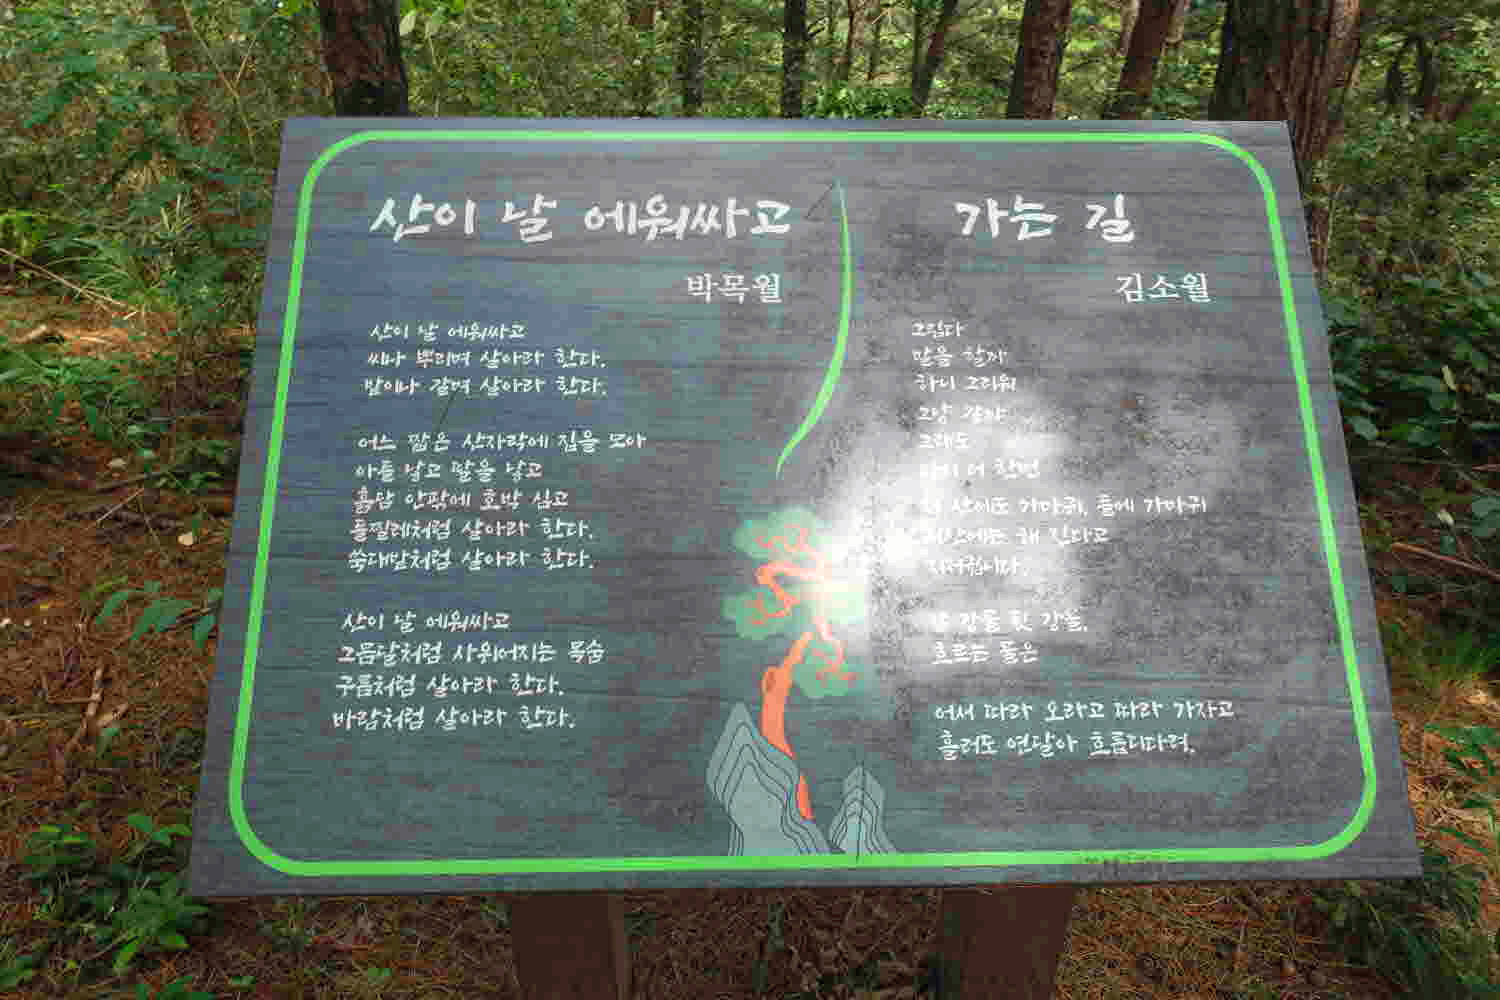 산이 날 에워싸고
박목월
산이 날 에워싸고
씨나 뿌리며 살아라 한다.
밭이나 갈며 살아라 한다.
어느 짧은 산자락에 집을 모아
아들 낳고 딸을 낳고
흙담 안팎에 호박 심고
들찔레처럼 살아라 한다.
쑥대밭처럼 살아라 한다.
산이 날 에워싸고
그믐달처럼 사위어지는 목숨
구름처럼 살아라 한다.
바람처럼 살아라 한다.
가는 길
김소월
그립다
말을 할까
하니 그리워
그냥 갈까
그래도
다시 더 한번
산에도 가마귀, 들에 가마귀
해 진다고
지저귑니다.
강물 뒷 강물,
흐르는 물은
어서 따라 오라고 따라 가자고
흘러도 연달아 흐릅디다려.